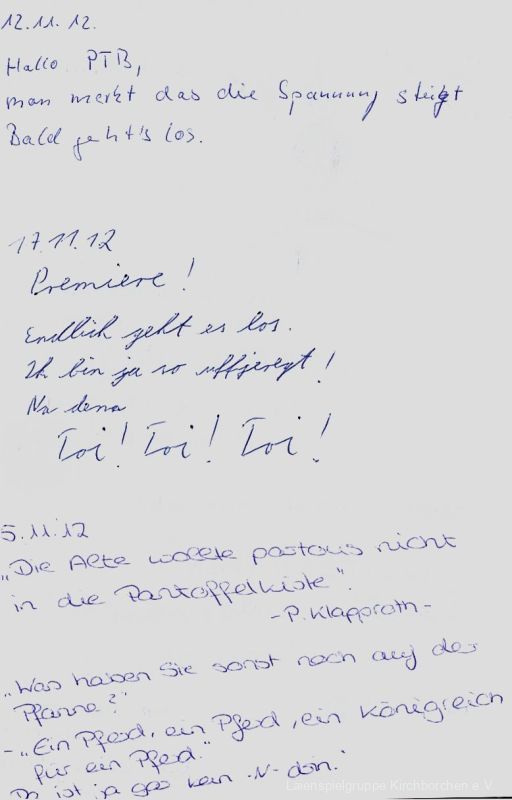 12.11.12.
Hallo PTB,
man merkt das die Spannung steigt
Bald geht's los.
17.11.12
Premiere!
Endlich geht es los.
Ich bin ja so uffjeregt!
Na denn
Toi! Toi! Toi!
5.11.12
„Die Alte wollte partous nicht
in die Pantoffelkiste".
-P. Klapproth-
„Was haben Sie sonst noch auf der
Pfanne?"
- „Ein Pferd, ein Pferd, ein Königreich
für ein Pferd."
Da ist ja gar kein -N- drin!
Laienspielgruppe Kirchborchen e.V.